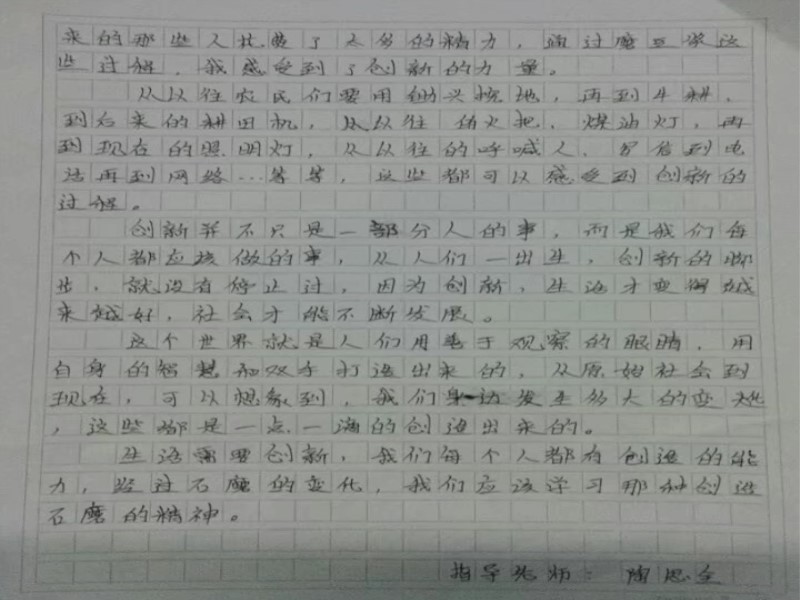 来的那些人耗费了太多的精力，通过磨豆浆这
些过程，我感受到了创新的力量。
从以往农民们要用锄头挖地，再到牛耕，
到后来的耕田机，从以往的火把，煤油灯，再
到现在的照明灯，从以往的呼喊人，写信到电
话再到网络…等等，这些都可以感受到创新的
过程。
创新并不只是一部分人的事，而是我们每
个人都应该做的事，从人们一出生，创新的脚
步，就没有停止过，因为创新，生活才变得越
来越好，社会才能不断发展。
这个世界就是人们用善于观察的眼睛，用
自身的智慧和双手打造出来的，从原始社会到
现在，可以想象到，我们身边发生多大的变化
，这些都是一点一滴的创造出来的。
生活需要创新，我们每个人都有创造的能
力，经过石磨的变化，我们应该学习那种创造
石磨的精神。
指导老师：陶思全